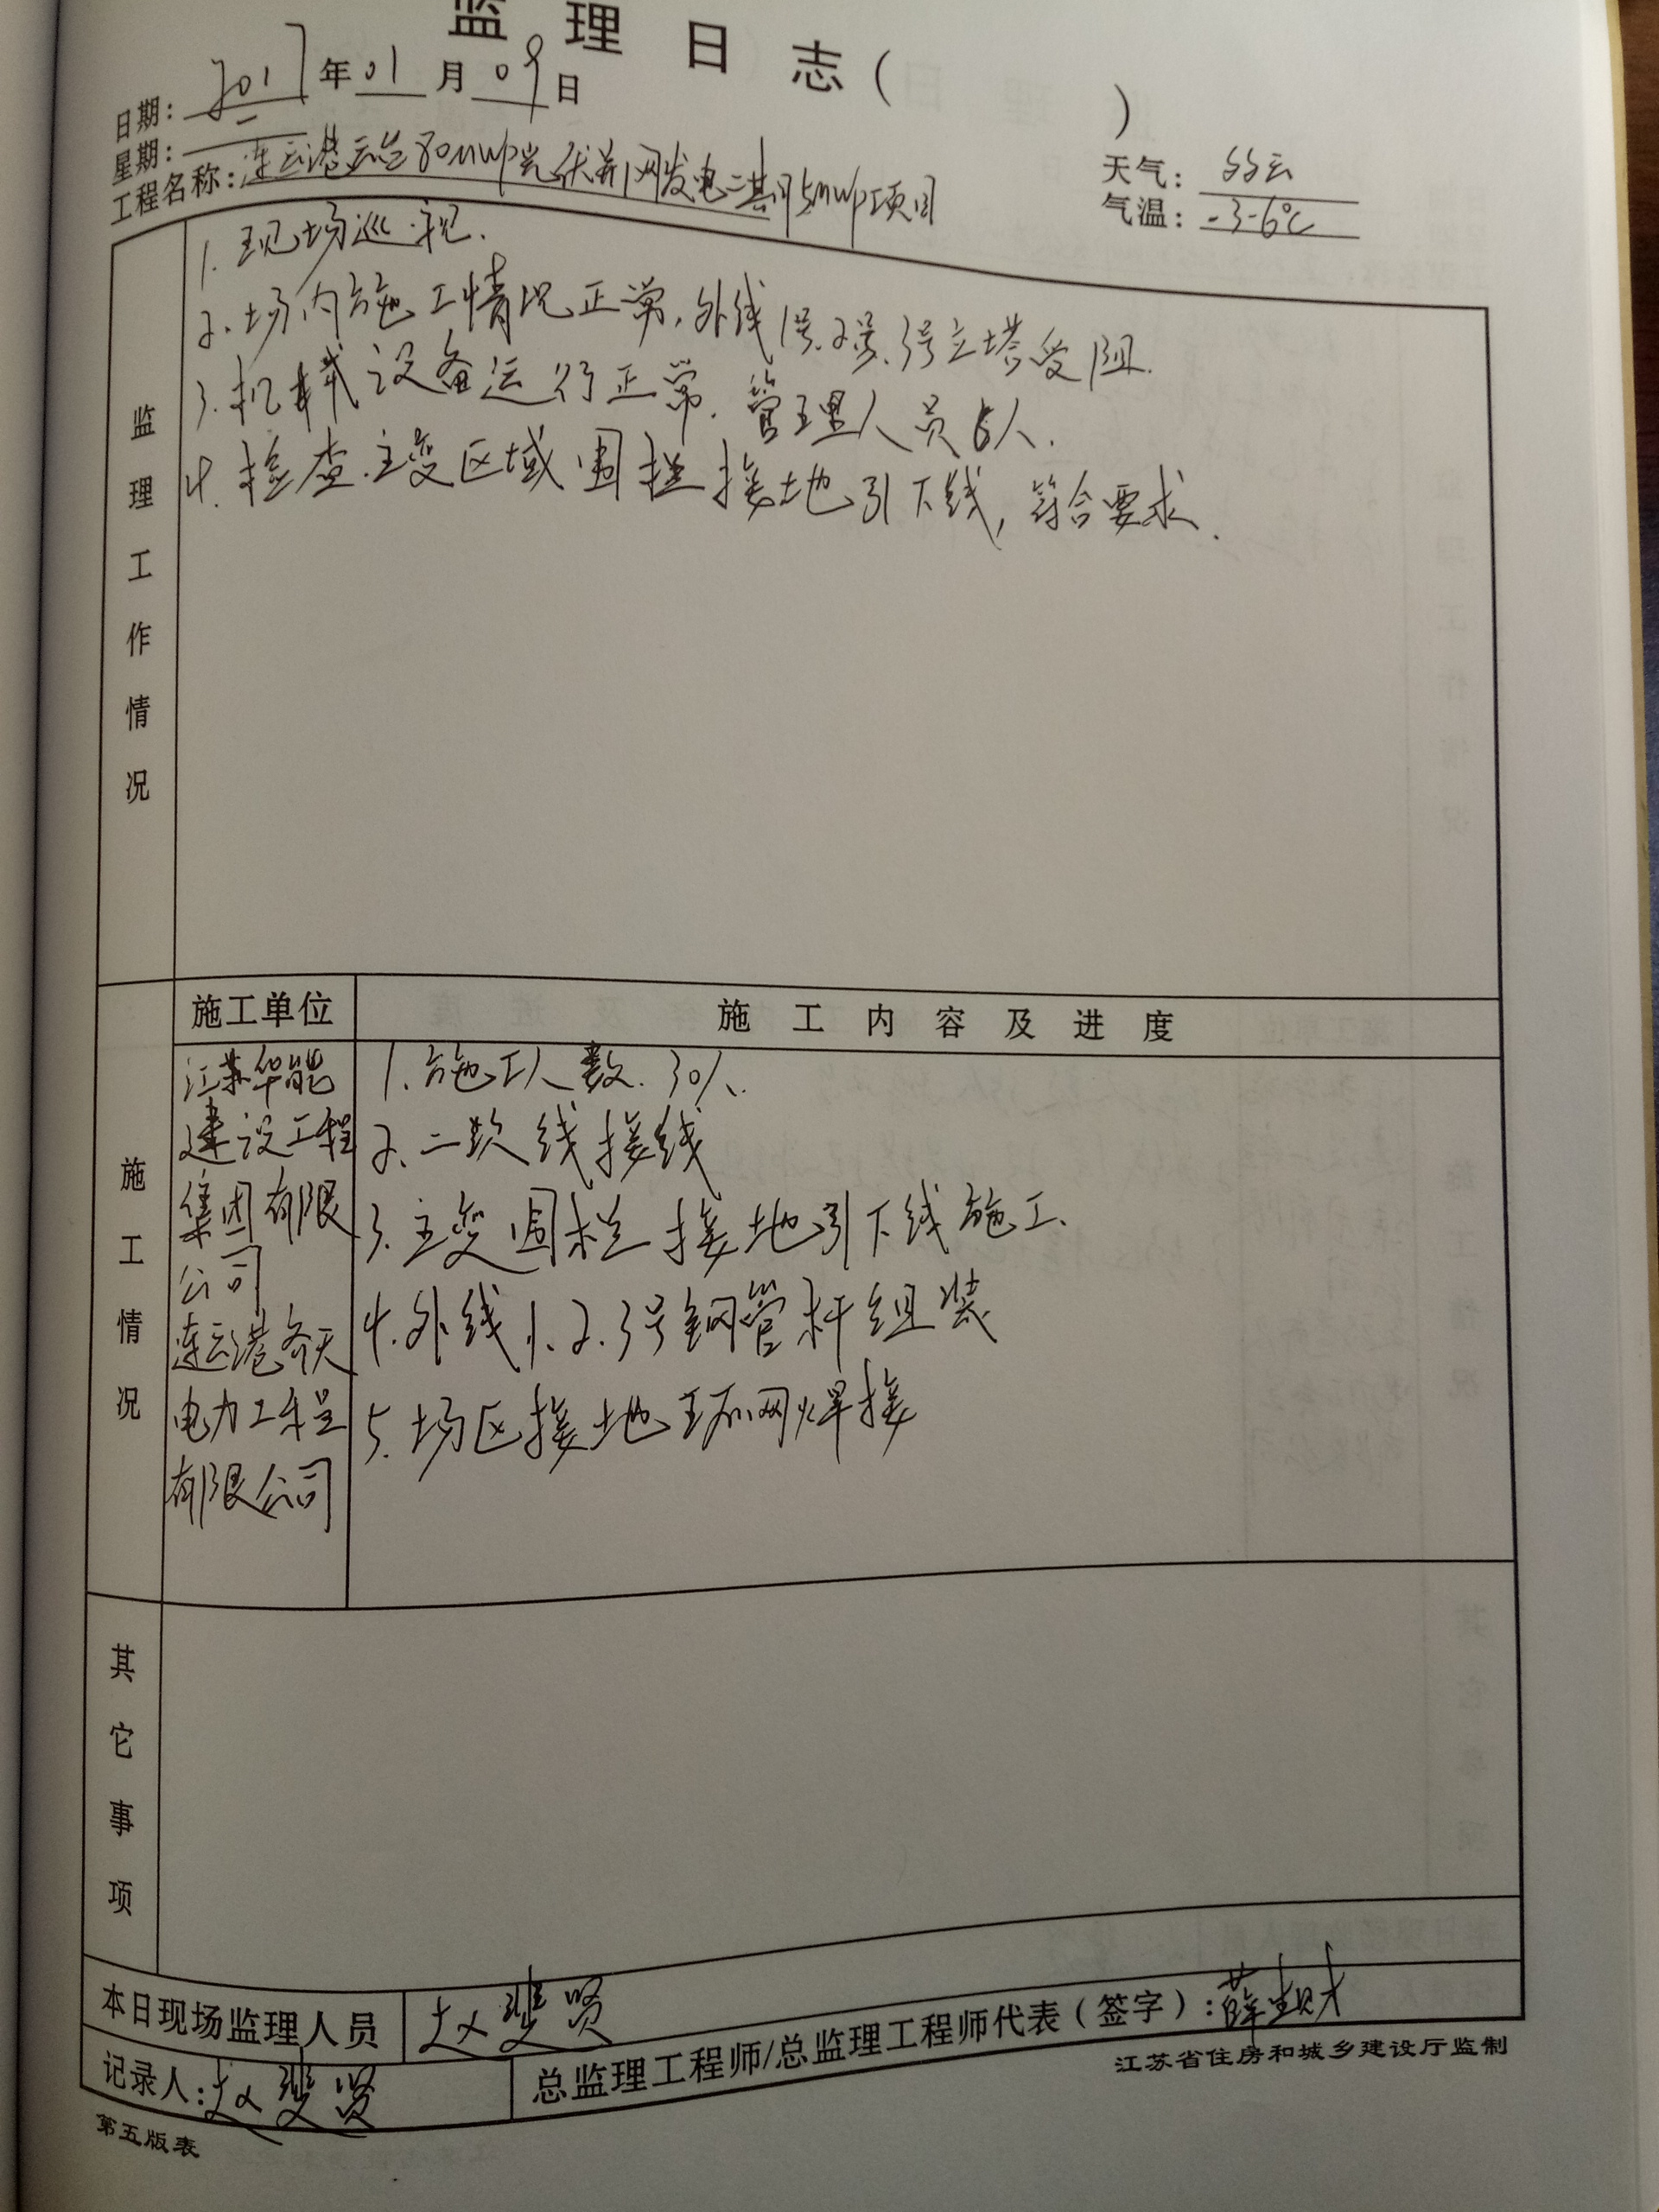 监理日志( )
日期: 2017年01月09日
星期: 一
工程名称: 连云港云台80MWp光伏并网发电二期5MWp项目
天气: 多云
气温: -3-6℃
监理工作情况
1. 现场巡视.
2. 场内施工情况正常,外线1号.2号.3号立塔受阻.
3. 机械设备运行正常. 管理人员6人.
4. 检查.主变区域围栏接地引下线,符合要求.
施工情况
施工单位
施工内容及进度
江苏华能
建设工程
集团有限
公司
连云港
电力工程
有限公司
1. 施工人数. 30人.
2. 二次线接线
3. 主变围栏接地引下线施工.
4. 外线1.2.3号钢管杆组装
5. 场区接地环网焊接
其它事项
本日现场监理人员 赵斐贤
记录人: 赵斐贤
总监理工程师/总监理工程师代表(签字): 薛
江苏省住房和城乡建设厅监制
第五版表